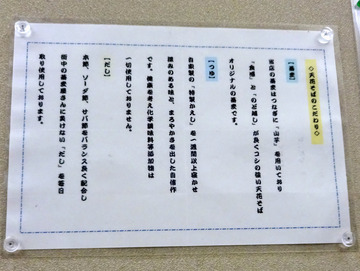 ◇天花そばのこだわり◇
【蕎麦】
当店の蕎麦はつなぎに「山芋」を用いており
「食感」と「のど越し」が良くコシの強い天花そば
オリジナルの蕎麦です。
【つゆ】
自家製の「特製かえし」を一週間以上寝かせ
深みのある味と、まろやかさを出した自信作
です。健康を考え化学調味料等添加物は
一切使用しておりません。
【だし】
本節、ソーダ節、サバ節をバランス良く配合し
街中の蕎麦屋さんに負けない「だし」を毎日
取り使用しております。